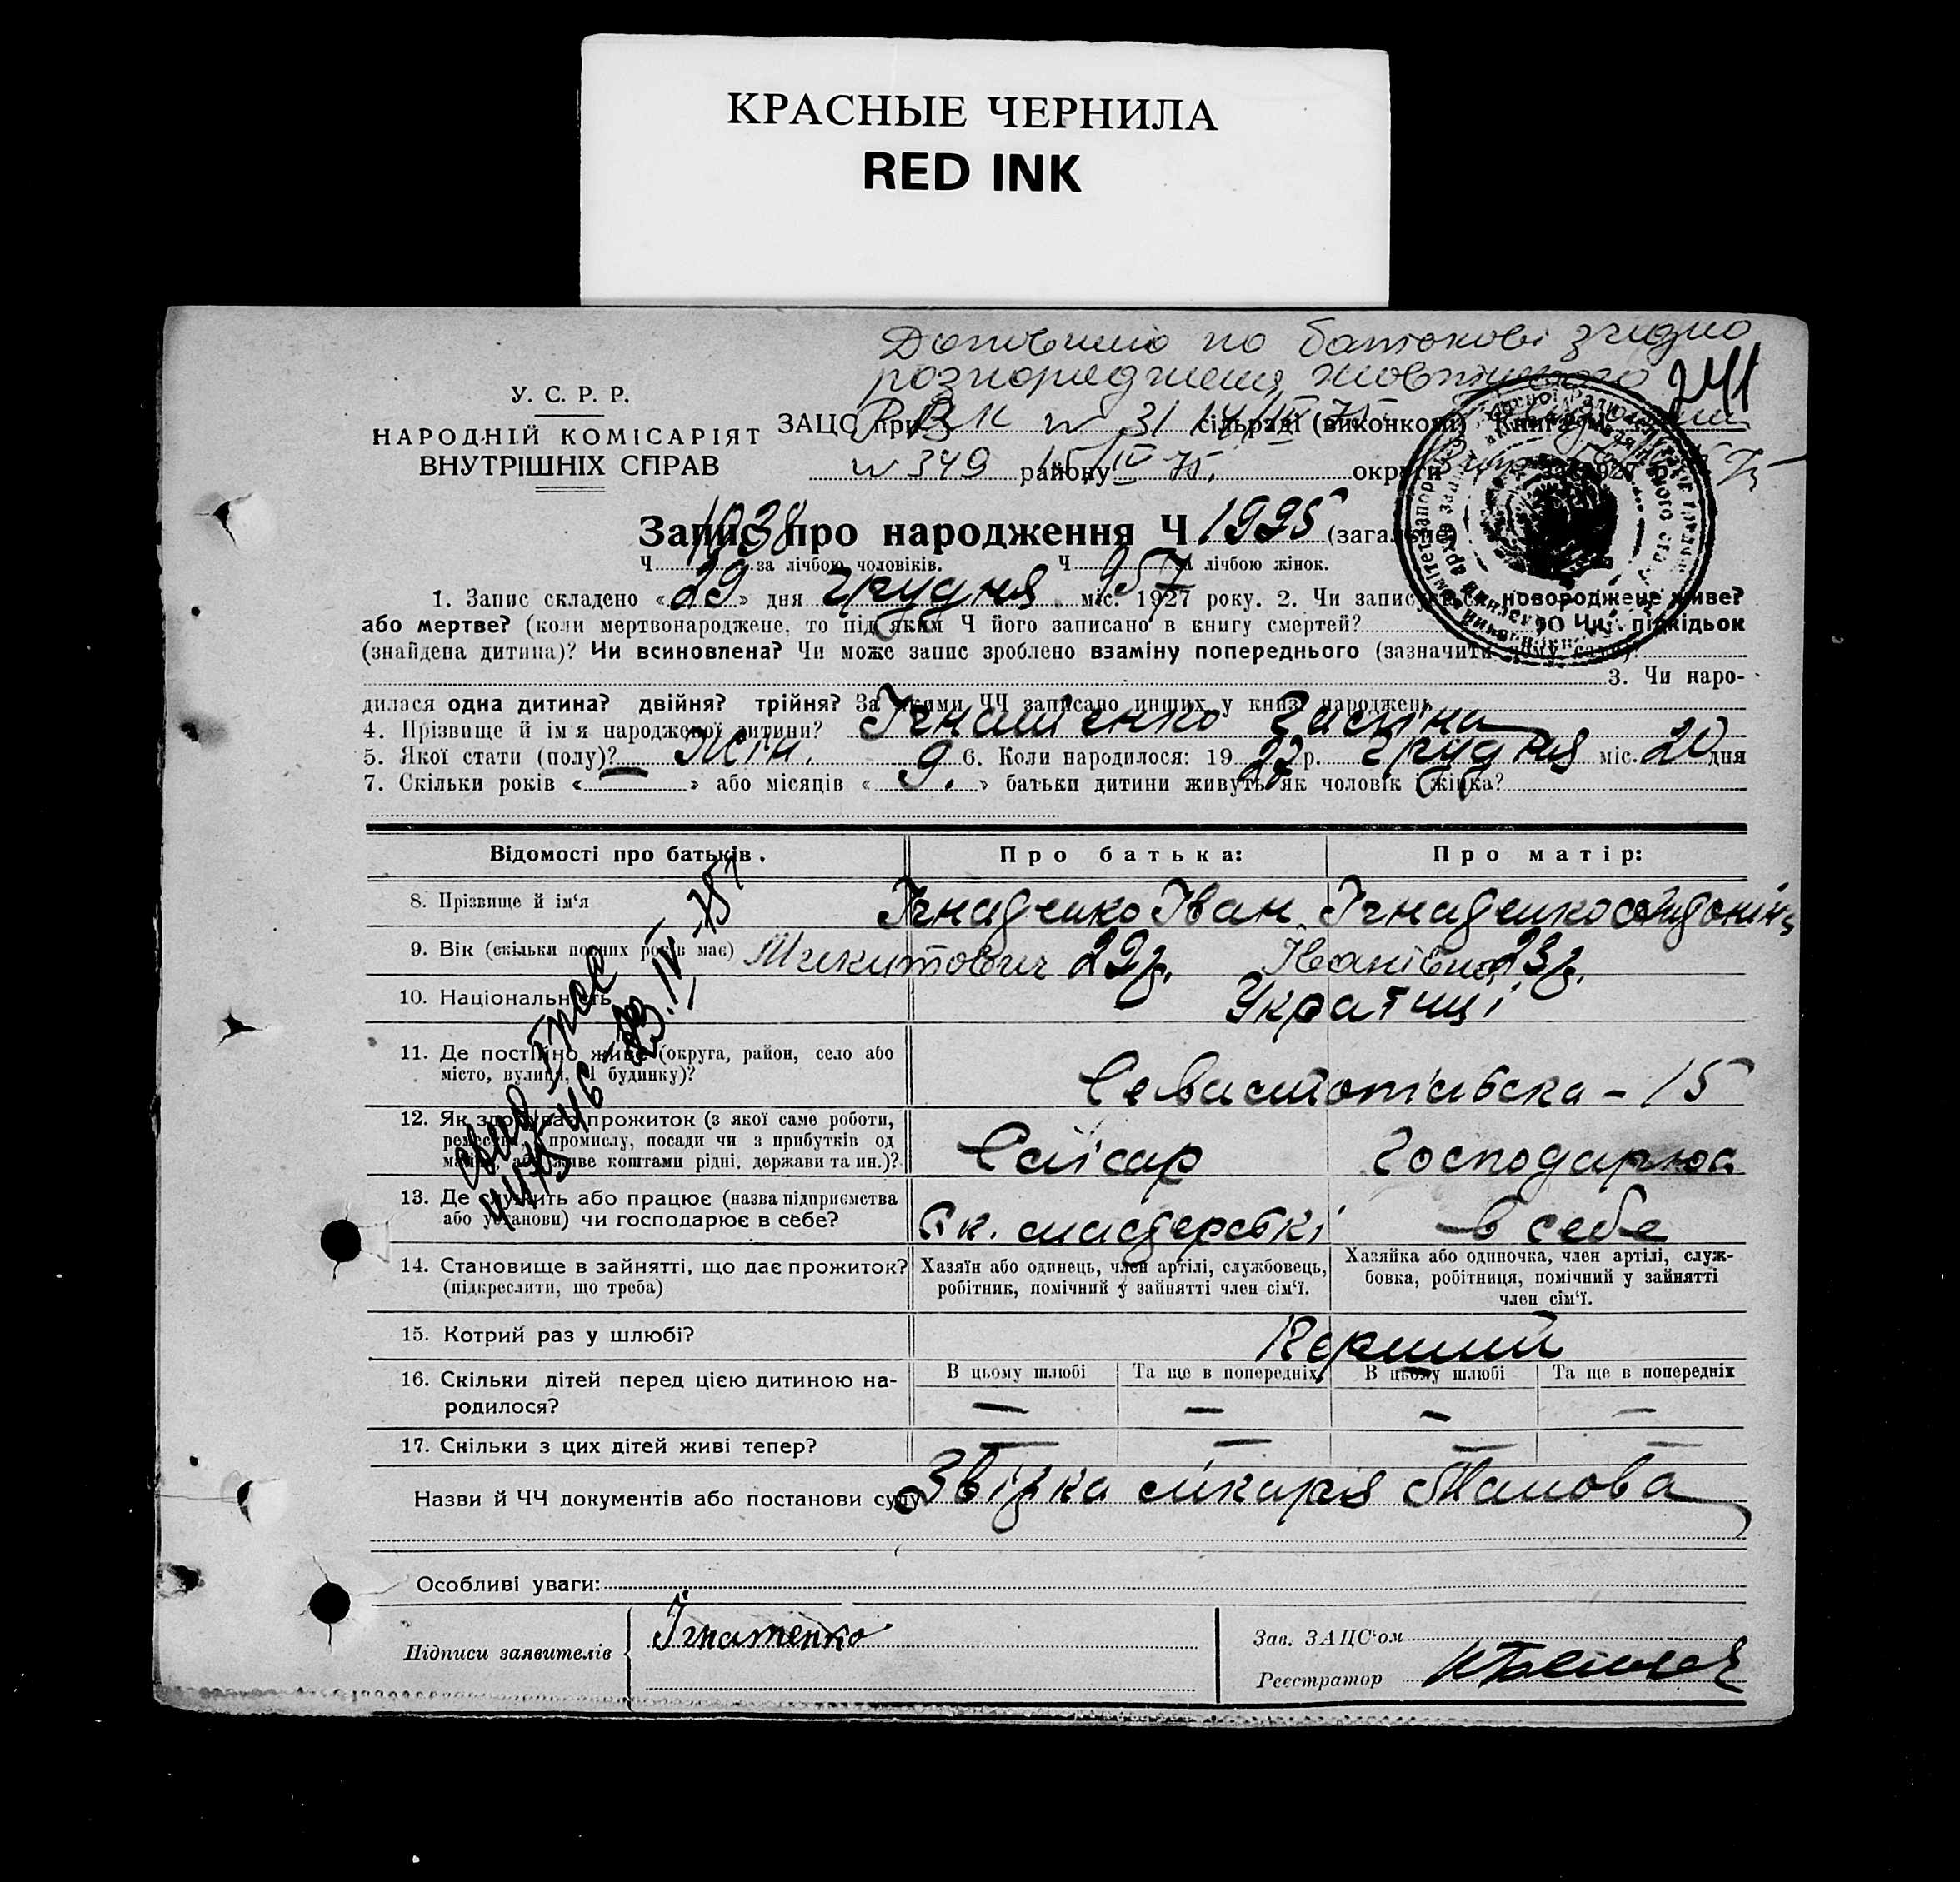 КРАСНЫЕ ЧЕРНИЛА
RED INK
Доповнено по батькові згідно
розпорядження Жовтневого
241
У. С. Р. Р.
НАРОДНІЙ КОМІСАРІЯТ
ВНУТРІШНІХ СПРАВ
ЗАЦС при РВК № 31 14/III 75 сільраді (виконкомі) Книга
№ 349 району 15/IV 75. округи 1927
Запис про народження Ч 1995 (загальне)
Ч 1038 за лічбою чоловіків. Ч 957 за лічбою жінок.
1. Запис складено «29» дня грудня міс. 1927 року. 2. Чи записується новороджене живе?
або мертве? (коли мертвонароджене, то під яким Ч його записано в книгу смертей? Чи підкідьок
(знайдена дитина)? Чи всиновлена? Чи може запис зроблено взаміну попереднього (зазначити чому саме)?
3. Чи наро-
дилася одна дитина? двійня? трійня? За якими ЧЧ записано инших у книзі народжень
4. Прізвище й ім'я народженої дитини? Ігнатенко
5. Якої стати (полу)? Жін. 6. Коли народилося: 1927 р. грудня міс. 20 дня
7. Скільки років «—» або місяців «9.» батьки дитини живуть як чоловік і жінка?
Відомості про батьків. Про батька: Про матір:
8. Прізвище й ім'я Ігнатенко Іван Ігнатенко
9. Вік (скільки повних років має) Микитович 22р. Іванівна 23р.
10. Національність Українці
11. Де постійно живе (округа, район, село або
місто, вулиця, Ч будинку)? Севастопільска - 15
12. Як здобуває прожиток (з якої саме роботи,
ремества, промислу, посади чи з прибутків од
майна, або живе коштами рідні, держави та ин.)? Слісар Господарює
13. Де служить або працює (назва підприємства
або установи) чи господарює в себе? майстерські в себе
14. Становище в зайнятті, що дає прожиток?
(підкреслити, що треба)
Хазяїн або одинець, член артілі, службовець,
робітник, помічний у зайнятті член сім'ї.
Хазяйка або одиночка, член артілі, служ-
бовка, робітниця, помічний у зайнятті
член сім'ї.
15. Котрий раз у шлюбі? Перший
16. Скільки дітей перед цією дитиною на-
родилося?
В цьому шлюбі Та ще в попередніх В цьому шлюбі Та ще в попередніх
— — — —
17. Скільки з цих дітей живі тепер? — — — —
Назви й ЧЧ документів або постанови суду Звістка лікаря
Особливі уваги:
Підписи заявителів Ігнатенко
Зав. ЗАЦС'ом
Реєстратор